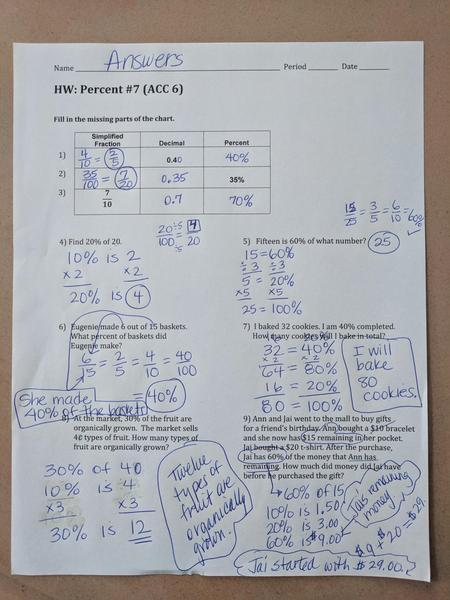 Name Answers Period Date
HW: Percent #7 (ACC 6)
Fill in the missing parts of the chart.
Simplified Fraction Decimal Percent
1) 4/10 = 2/5 0.40 40%
2) 35/100 = 7/20 0.35 35%
3) 7/10 0.7 70%
4) Find 20% of 20.
20/100 ÷5 ÷5 = 4/20
10% is 2
x2 x2
20% is 4
5) Fifteen is 60% of what number? 25
15/25 = 3/5 = 6/10 = 60% ✓
15 = 60%
÷3 ÷3
5 = 20%
x5 x5
25 = 100%
6) Eugenie made 6 out of 15 baskets.
What percent of baskets did
Eugenie make?
6/15 = 2/5 = 4/10 = 40/100
= 40%
She made
40% of the baskets
7) I baked 32 cookies. I am 40% completed.
How many cookies will I bake in total?
32 = 40%
x2 x2
64 = 80%
16 = 20%
80 = 100%
I will
bake
80
cookies.
8) At the market, 30% of the fruit are
organically grown. The market sells
40 types of fruit. How many types of
fruit are organically grown?
30% of 40
10% is 4
x3 x3
30% is 12
Twelve
types of
fruit are
organically
grown.
9) Ann and Jai went to the mall to buy gifts
for a friend's birthday. Ann bought a $10 bracelet
and she now has $15 remaining in her pocket.
Jai bought a $20 t-shirt. After the purchase,
Jai has 60% of the money that Ann has
remaining. How much did money did Jai have
before he purchased the gift?
60% of 15
10% is 1.50
20% is 3.00
60% is $9.00
Jai's remaining
money
$9 + $20 = $29.
Jai started with $29.00.